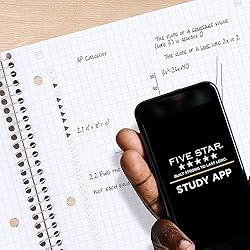 AP Calculus
THE SLOPE OF A CONSTANT VALUE
(LIKE 3) IS ALWAYS 0
THE SLOPE OF A LINE LIKE 2x IS 2
3x²-24x+40
2.1
2.2 FIND THE
NOT EACH
FIVE STAR
BUILT STRONG TO LAST LONG.
STUDY APP